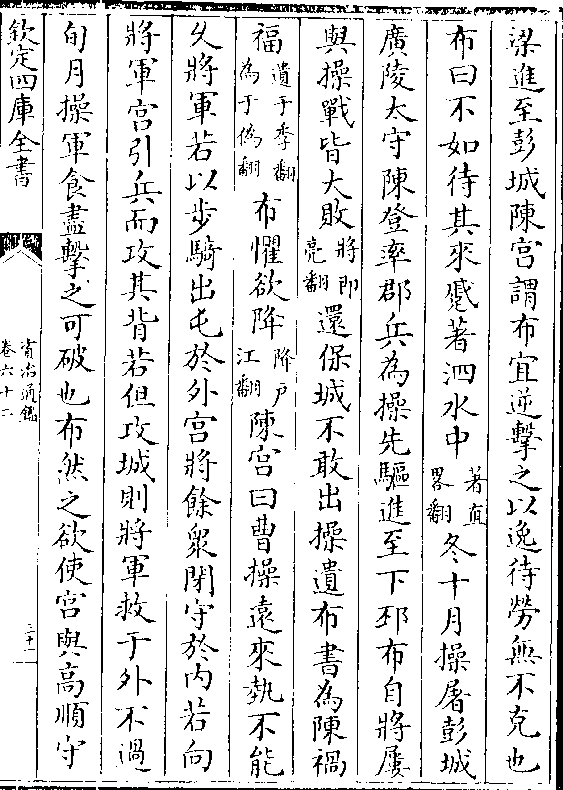 梁進至彭城陳宫謂布宜逆擊之以逸待勞無不克也
布曰不如待其來蹙著泗水中著直畧翻冬十月操屠彭城
廣陵太守陳登率郡兵為操先驅進至下邳布自將屢
與操戰皆大敗將即亮翻還保城不敢出操遺布書為陳禍
福遺于季翻為于偽翻布懼欲降降户江翻陳宫曰曹操遠來埶不能
久將軍若以步騎出屯於外宫將餘衆閉守於内若向
將軍宫引兵而攻其背若但攻城則將軍救于外不過
旬月操軍食盡擊之可破也布然之欲使宫與高順守
欽定四庫全書
資治通鑑
卷六十二
三十一